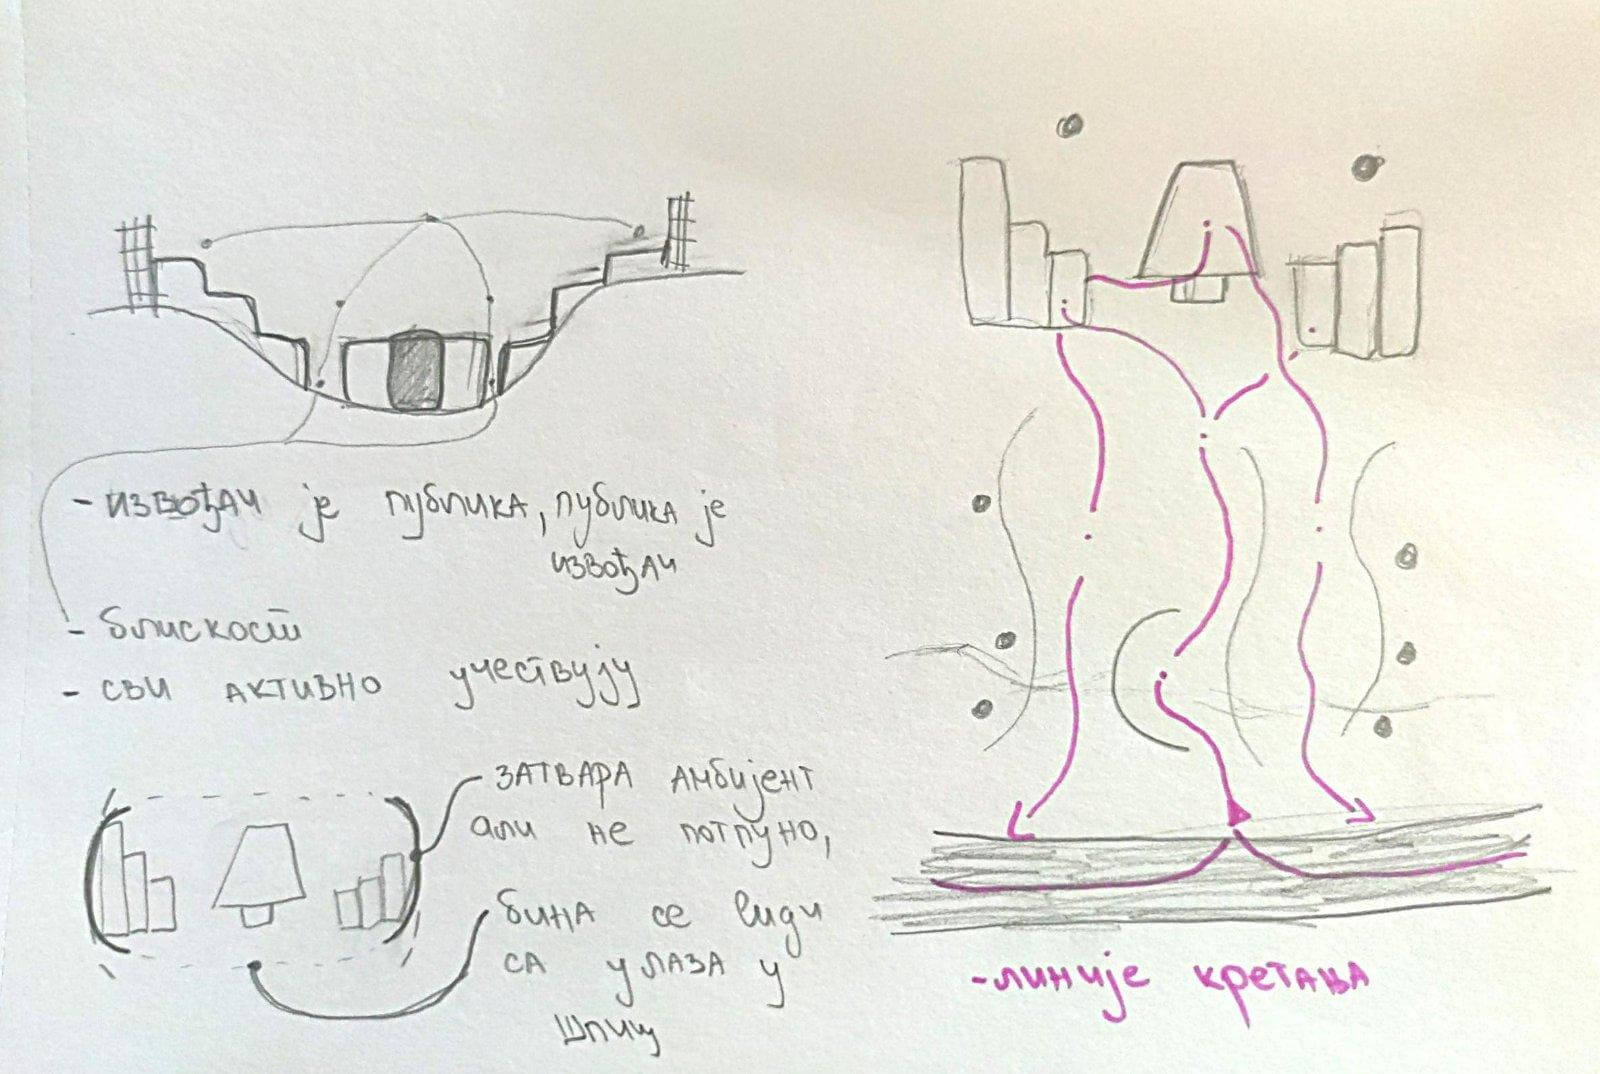 - ИЗВОЂАЧ је публика, публика је
ИЗВОЂАЧ
- блискост
- СВИ АКТИВНО учествују
ЗАТВАРА АМбијент
али не потпуно,
бина се види
СА УЛАЗА у
Шпиц
- линије кретања